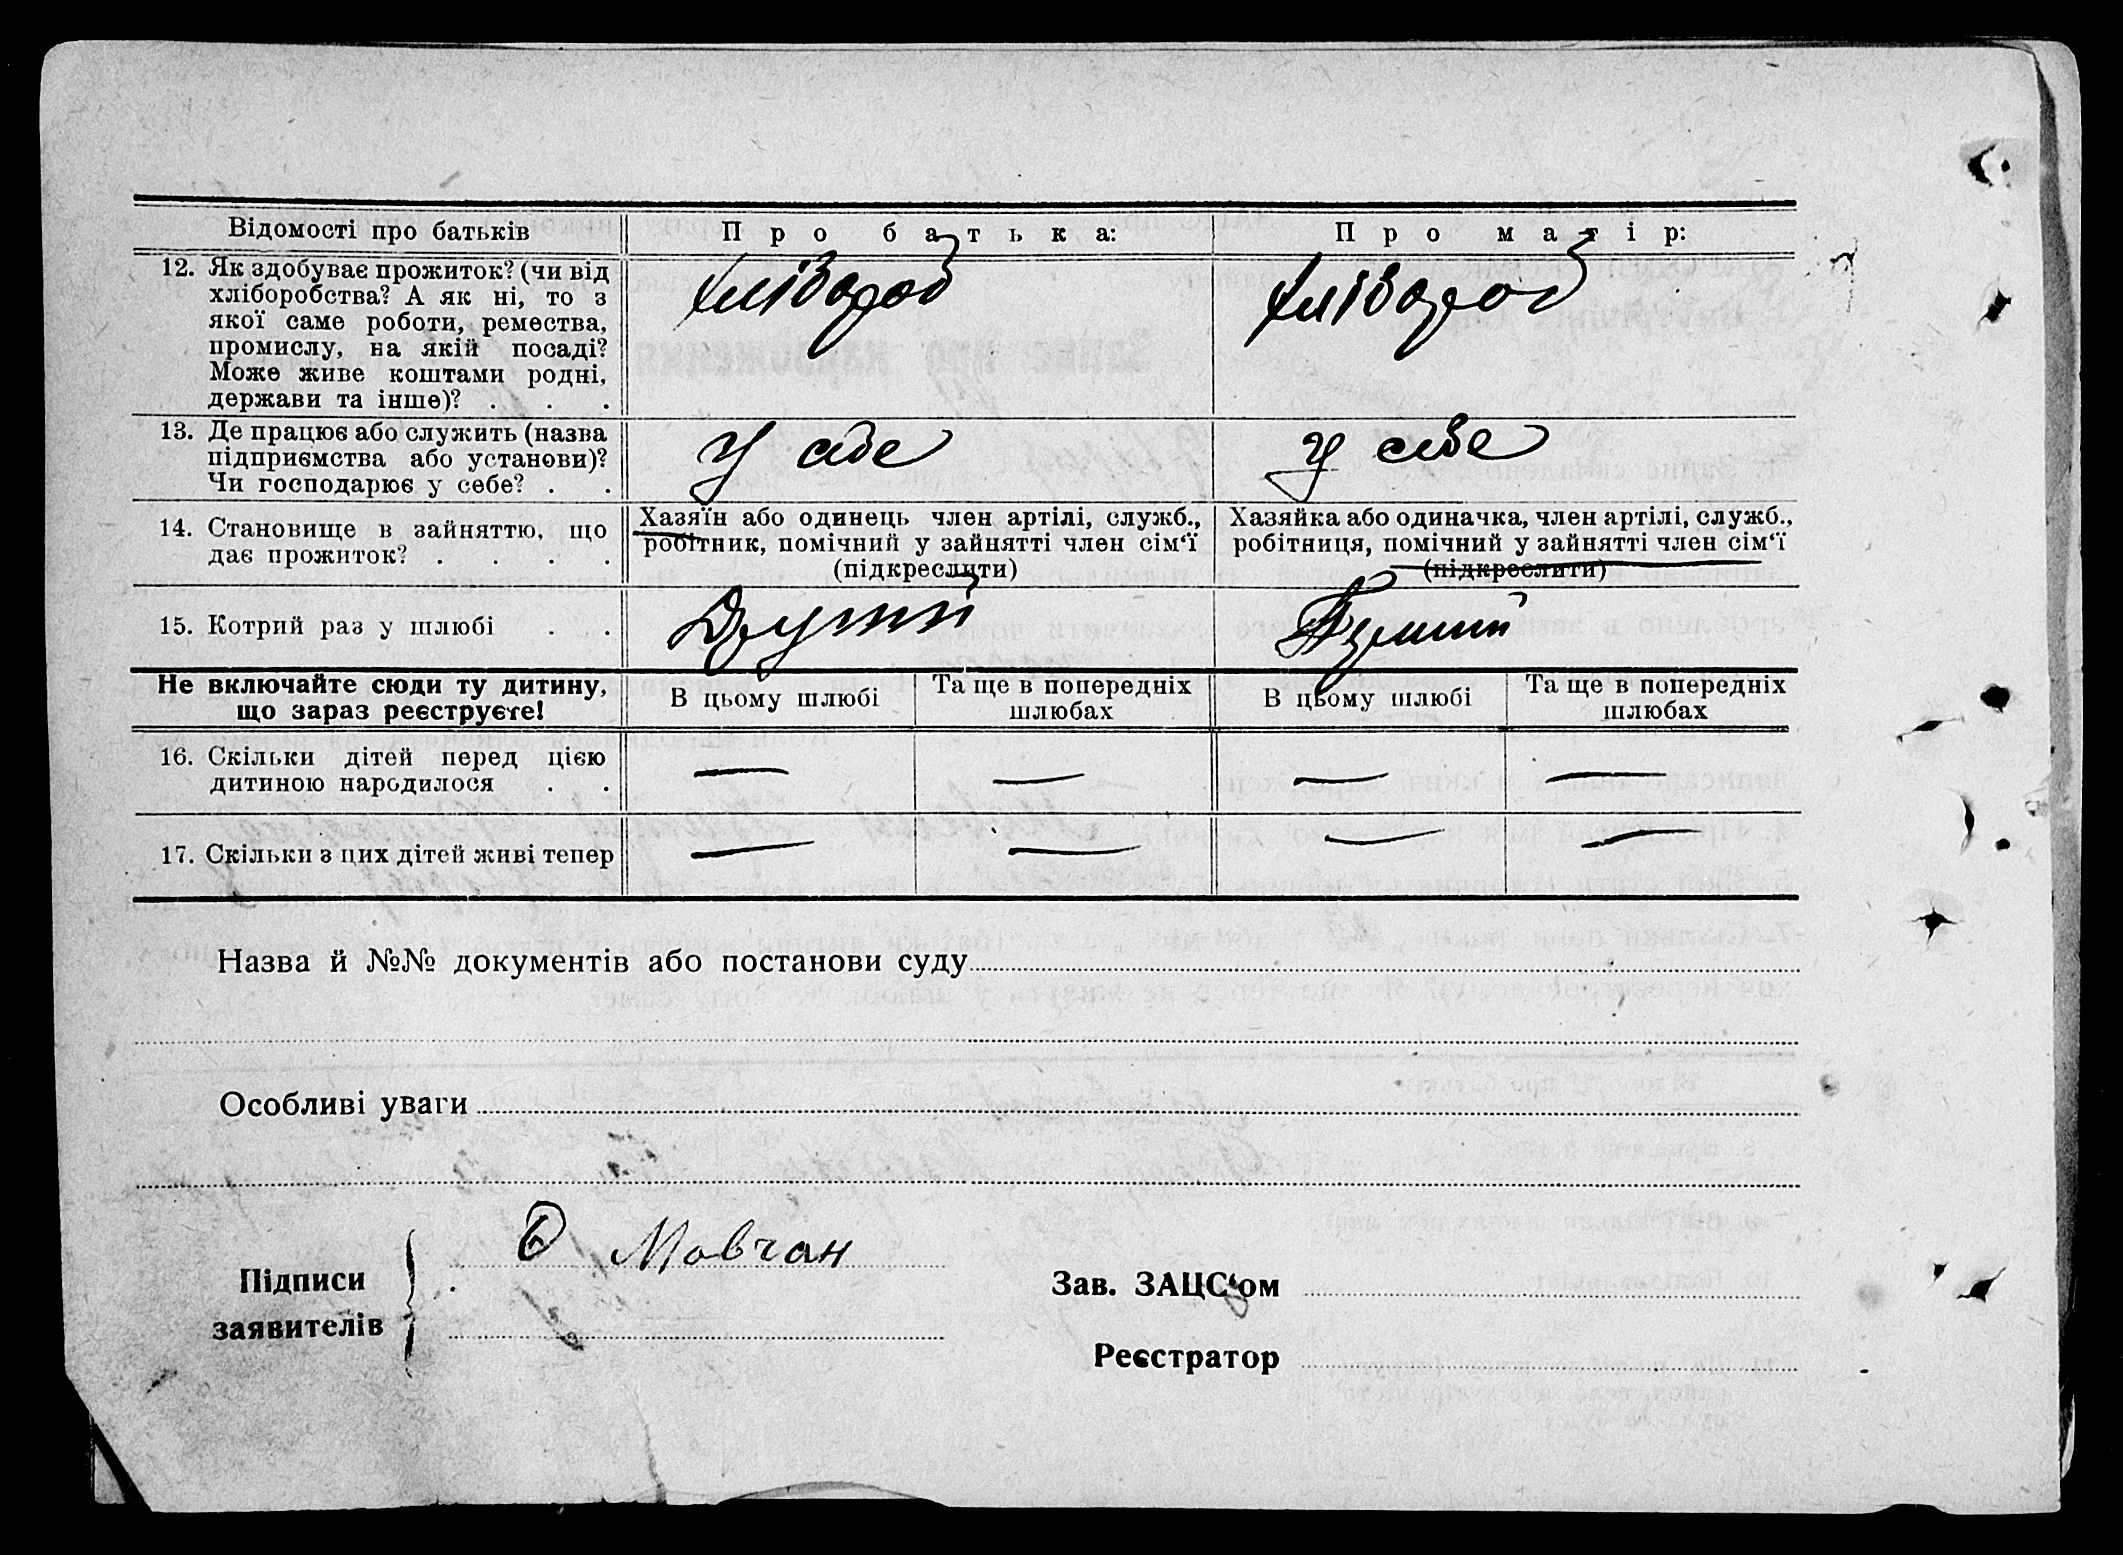 Відомості про батьків
Про батька:
Про матір:
12. Як здобуває прожиток? (чи від
хліборобства? А як ні, то з
якої саме роботи, ремества,
промислу, на якій посаді?
Може живе коштами родні,
держави та інше)? . . .
хлібороб
хлібороб
13. Де працює або служить (назва
підприємства або установи)?
Чи господарює у себе? . .
У себе
У себе
14. Становище в зайняттю, що
дає прожиток? . . . .
Хазяїн або одинець член артілі, служб.,
робітник, помічний у зайнятті член сім‘ї
(підкреслити)
Хазяйка або одиначка, член артілі, служб.,
робітниця, помічний у зайнятті член сім‘ї
(підкреслити)
15. Котрий раз у шлюбі . .
Другий
Не включайте сюди ту дитину,
що зараз реєструєте!
В цьому шлюбі
Та ще в попередніх
шлюбах
В цьому шлюбі
Та ще в попередніх
шлюбах
16. Скільки дітей перед цією
дитиною народилося . .
— — — —
17. Скільки з цих дітей живі тепер
— — — —
Назва й №№ документів або постанови суду
Особливі уваги
Мовчан
Підписи
заявителів
Зав. ЗАЦС‘ом
Реєстратор